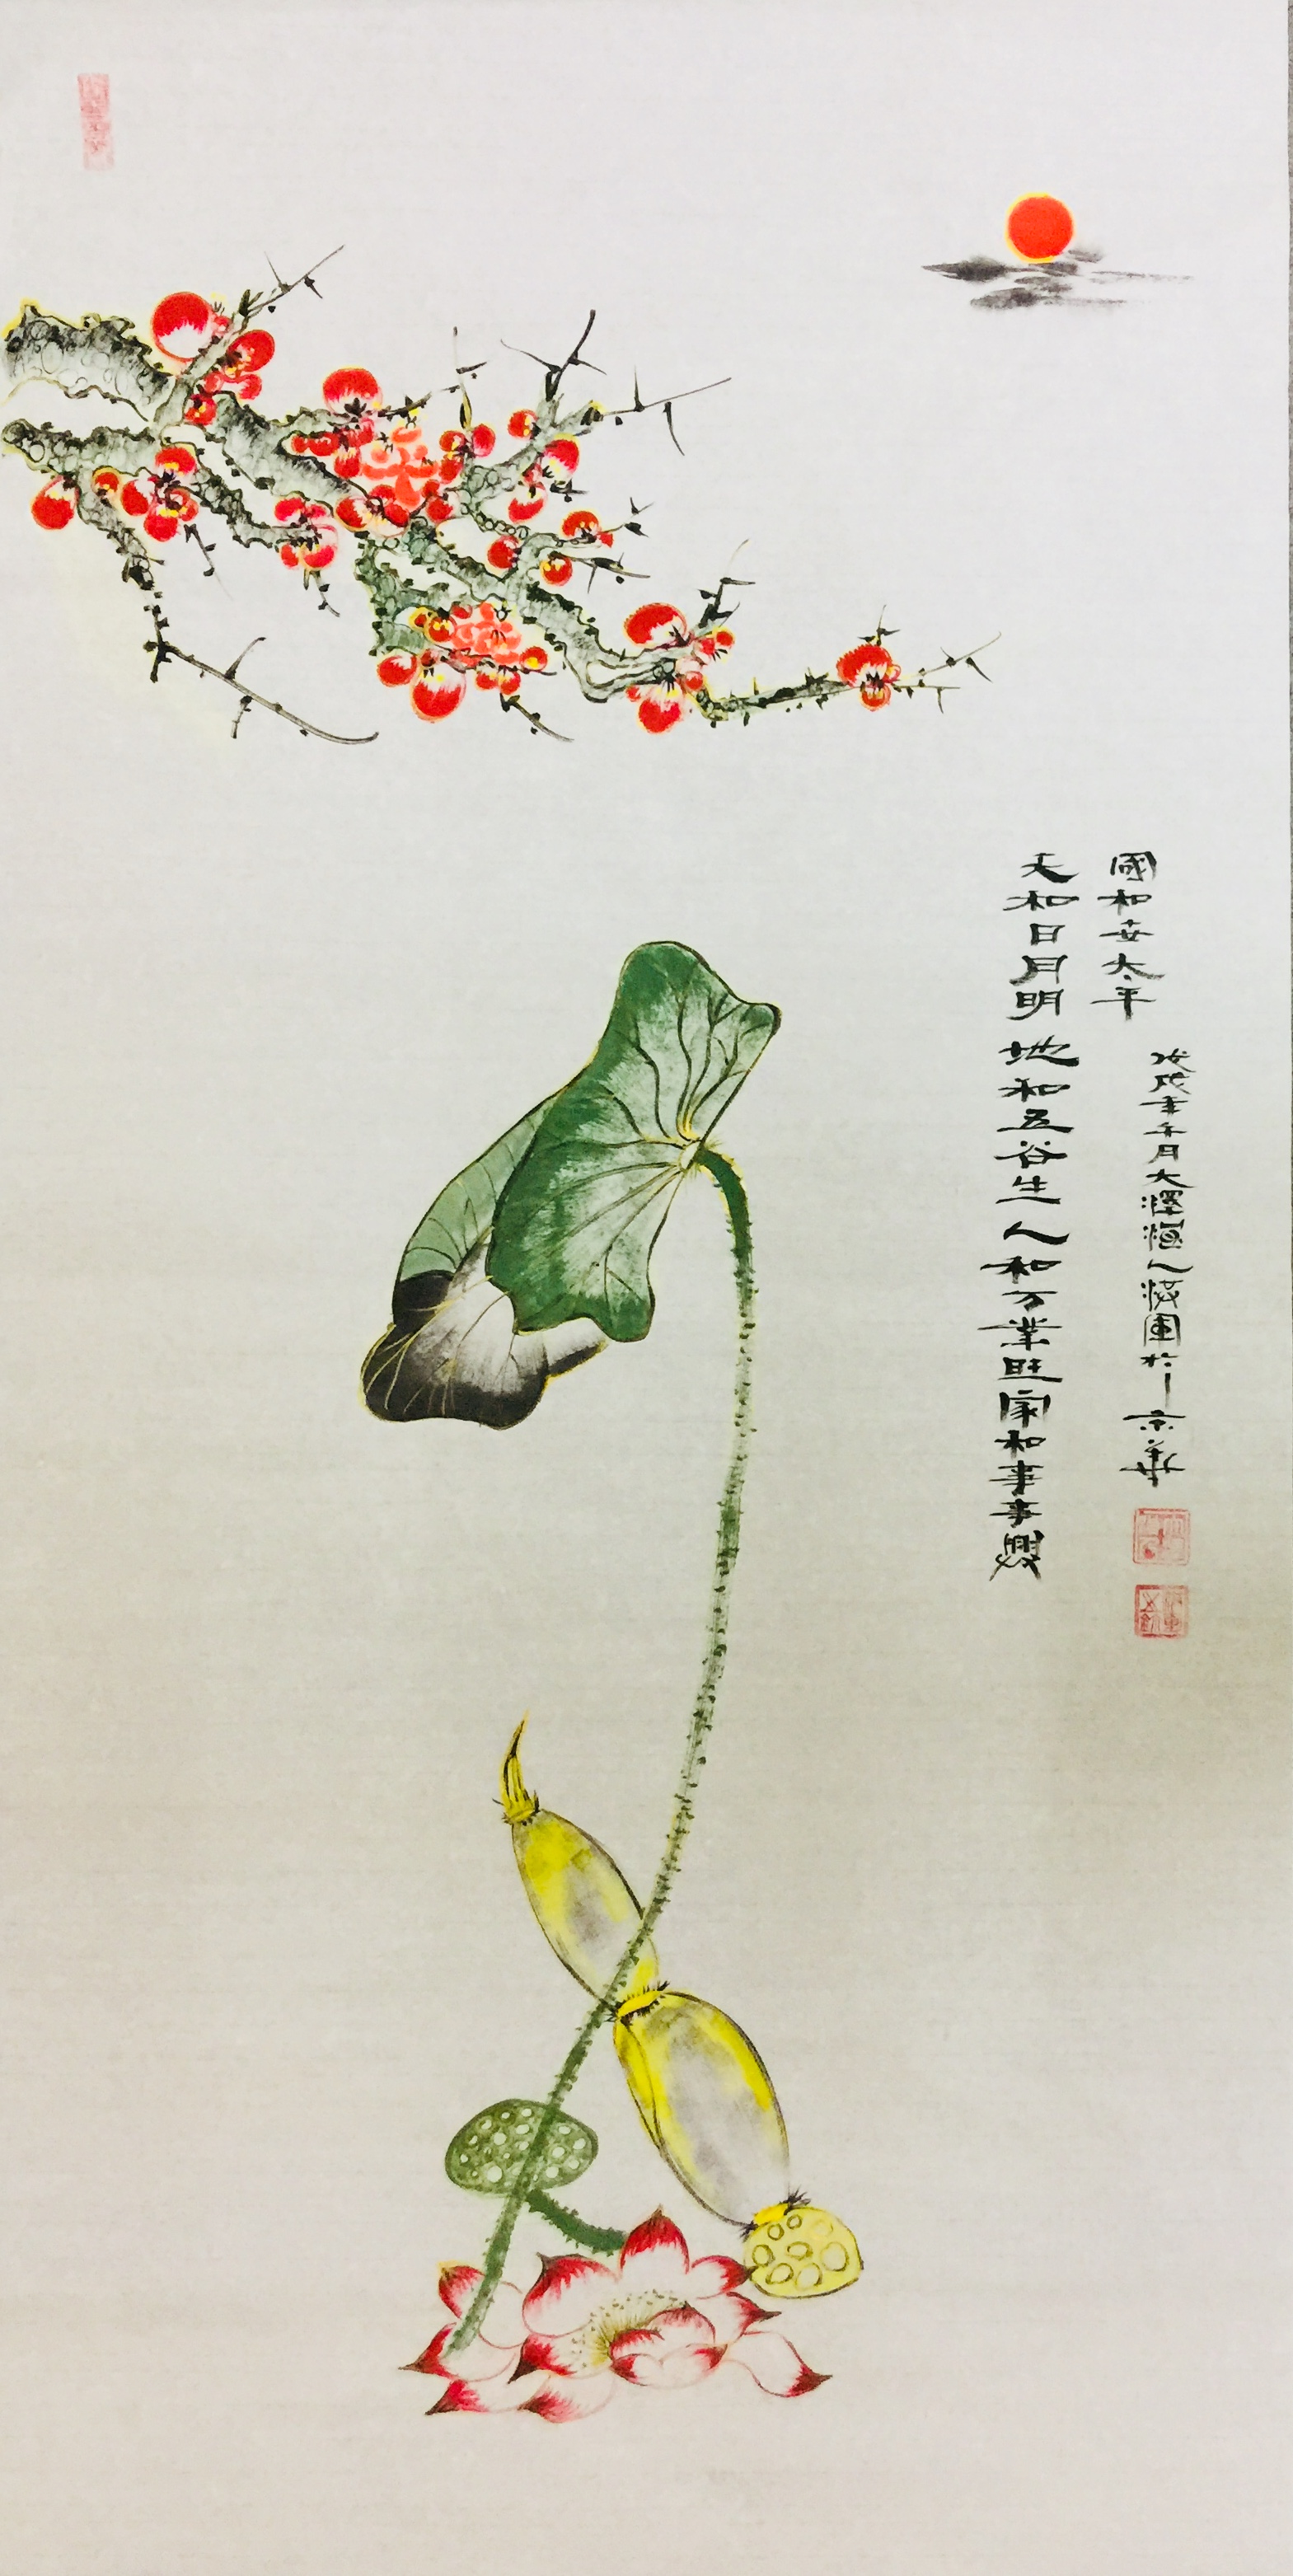 天和日月明 地和五谷生 人和万業旺 家和事事興
國和安太平
戊戌年午月大澤人軍於京華